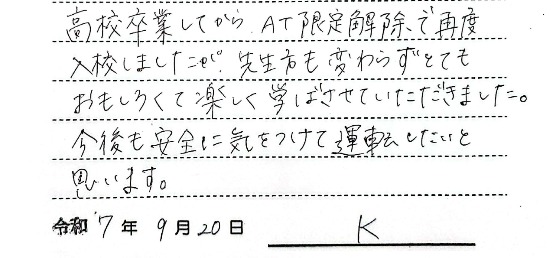 高校卒業してから AT限定解除で再度
入校しましたが、先生方も変わらずとても
おもしろくて楽しく学ばさせていただきました。
今後も安全に気をつけて運転したいと
思います。
令和7年9月20日 K